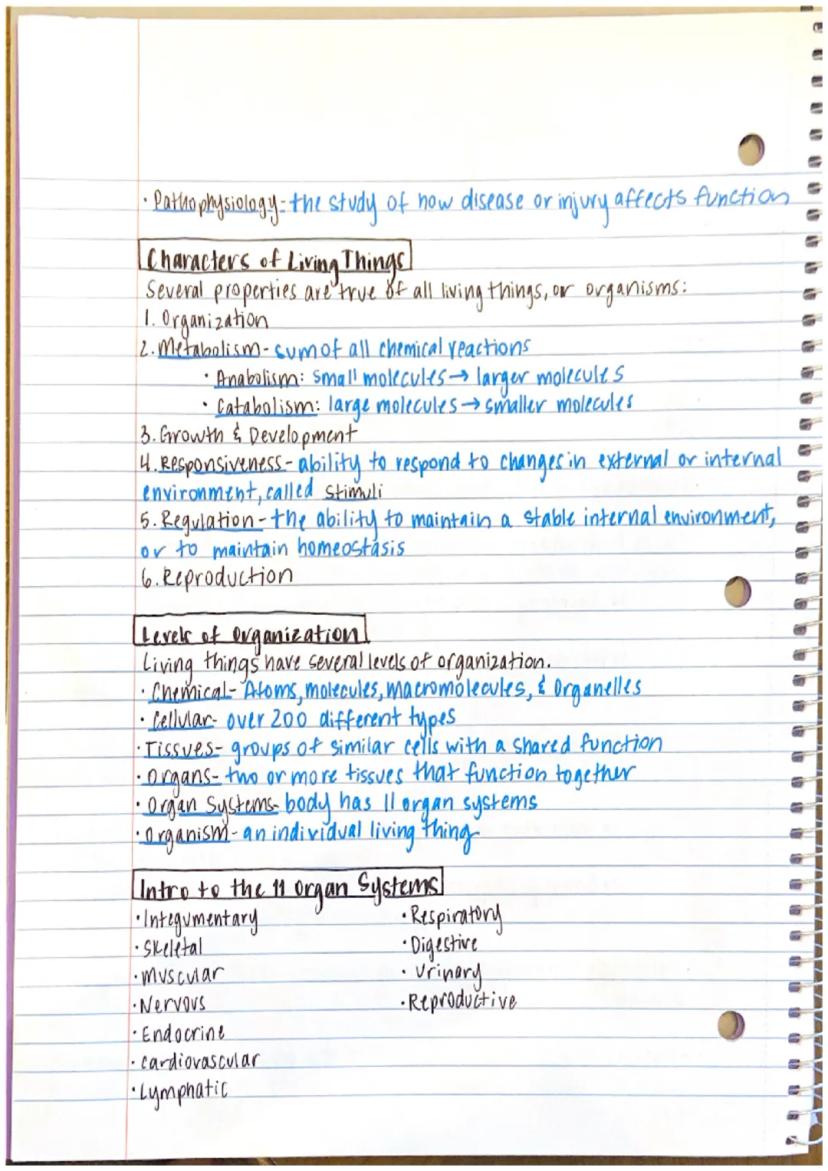 · Pathophysiology- the study of how disease or injury affects function
Characters of Living Things
Several properties are true of all living things, or organisms:
1. Organization
2. Metabolism- sum of all chemical reactions
· Anabolism: small molecules → larger molecules
· Catabolism: large molecules → smaller molecules
3. Growth & Development
4. Responsiveness- ability to respond to changes in external or internal
environment, called stimuli
5. Regulation- the ability to maintain a stable internal environment,
or to maintain homeostasis
6. Reproduction
Levels of Organization
Living things have several levels of organization.
· Chemical- Atoms, molecules, macromolecules, & Organelles
· Cellular- over 200 different types
· Tissues- groups of similar cells with a shared function
· Organs- two or more tissues that function together
· Organ Systems- body has 11 organ systems
· Organism- an individual living thing
Intro to the 11 Organ Systems
· Integumentary
· Skeletal
· Muscular
· Nervous
· Endocrine
· Cardiovascular
· Lymphatic
· Respiratory
· Digestive
· Urinary
· Reproductive